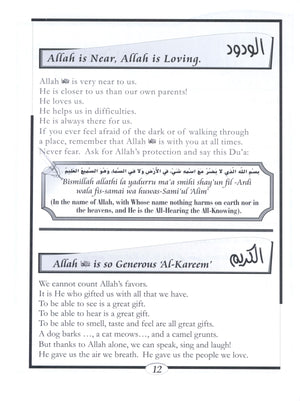 Allah is Near, Allah is Loving.
الودود
Allah ﷻ is very near to us.
He is closer to us than our own parents!
He loves us.
He helps us in difficulties.
He is always there for us.
If you ever feel afraid of the dark or of walking through
a place, remember that Allah ﷻ is with you at all times.
Never fear. Ask for Allah's protection and say this Du'a:
بسم الله الذي لا يضر مع اسمه شيء في الأرض ولا في السماء وهو السميع العليم
Bismillah allathi la yadurru ma'a smihi shay'un fil -Ardi
wala fis-samai wa huwas-Sami'ul 'Alim'
(In the name of Allah, with Whose name nothing harms on earth nor in
the heavens, and He is the All-Hearing the All-Knowing).
Allah ﷻ is so Generous 'Al-Kareem'
الكريم
We cannot count Allah's favors.
It is He who gifted us with all that we have.
To be able to see is a great gift.
To be able to hear is a great gift.
To be able to smell, taste and feel are all great gifts.
A dog barks …, a cat meows…, and a camel grunts.
But thanks to Allah alone, we can speak, sing and laugh!
He gave us the air we breath. He gave us the people we love.
12